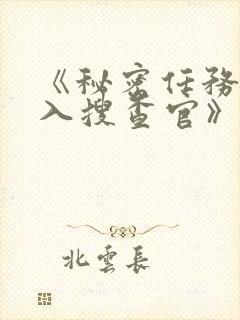 《秘密任务
入搜查官》
北雲長